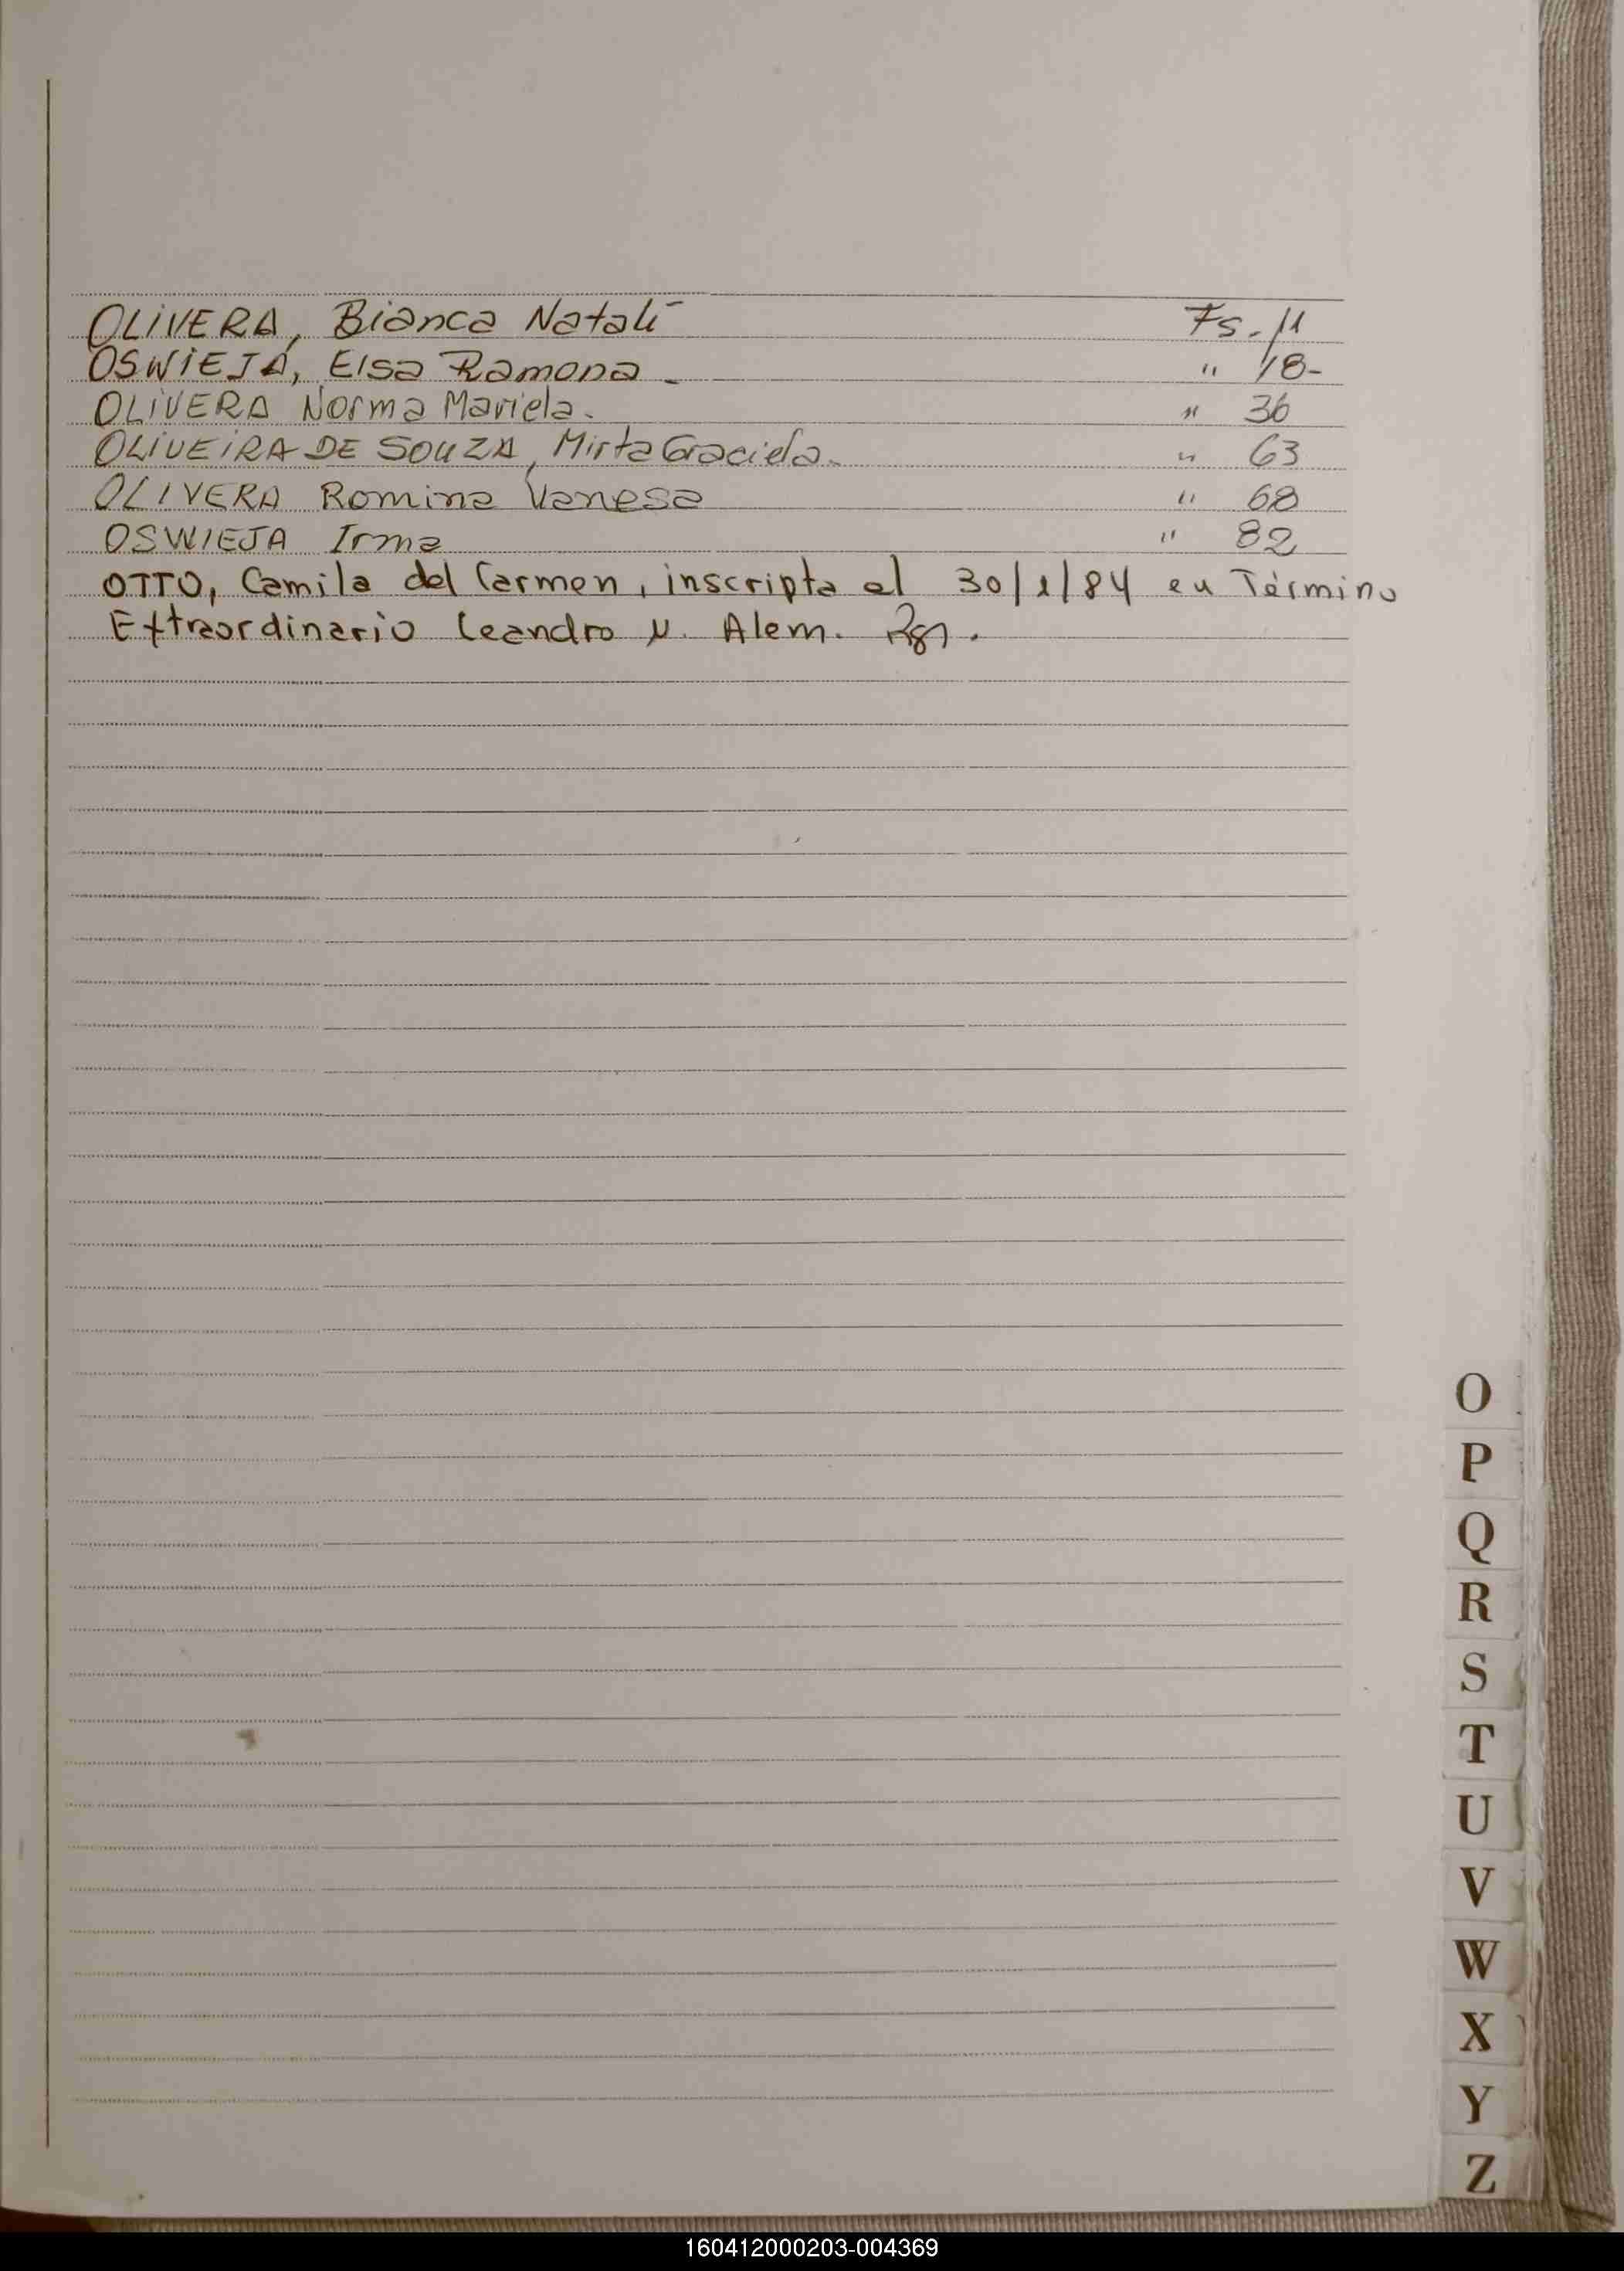 OLIVERA, Bianca Natalí Fs. 11
OSWIEJA, Elsa Ramona - " 18-
OLIVERA Norma Mariela. " 36
OLIVEIRA DE SOUZA, Mirta Graciela. " 63
OLIVERA Romina Vanesa " 68
OSWIEJA Irma " 82
OTTO, Camila del Carmen, inscripta el 30/1/84 en Término
Extraordinario Leandro N. Alem.
O
P
Q
R
S
T
U
V
W
X
Y
Z
160412000203-004369